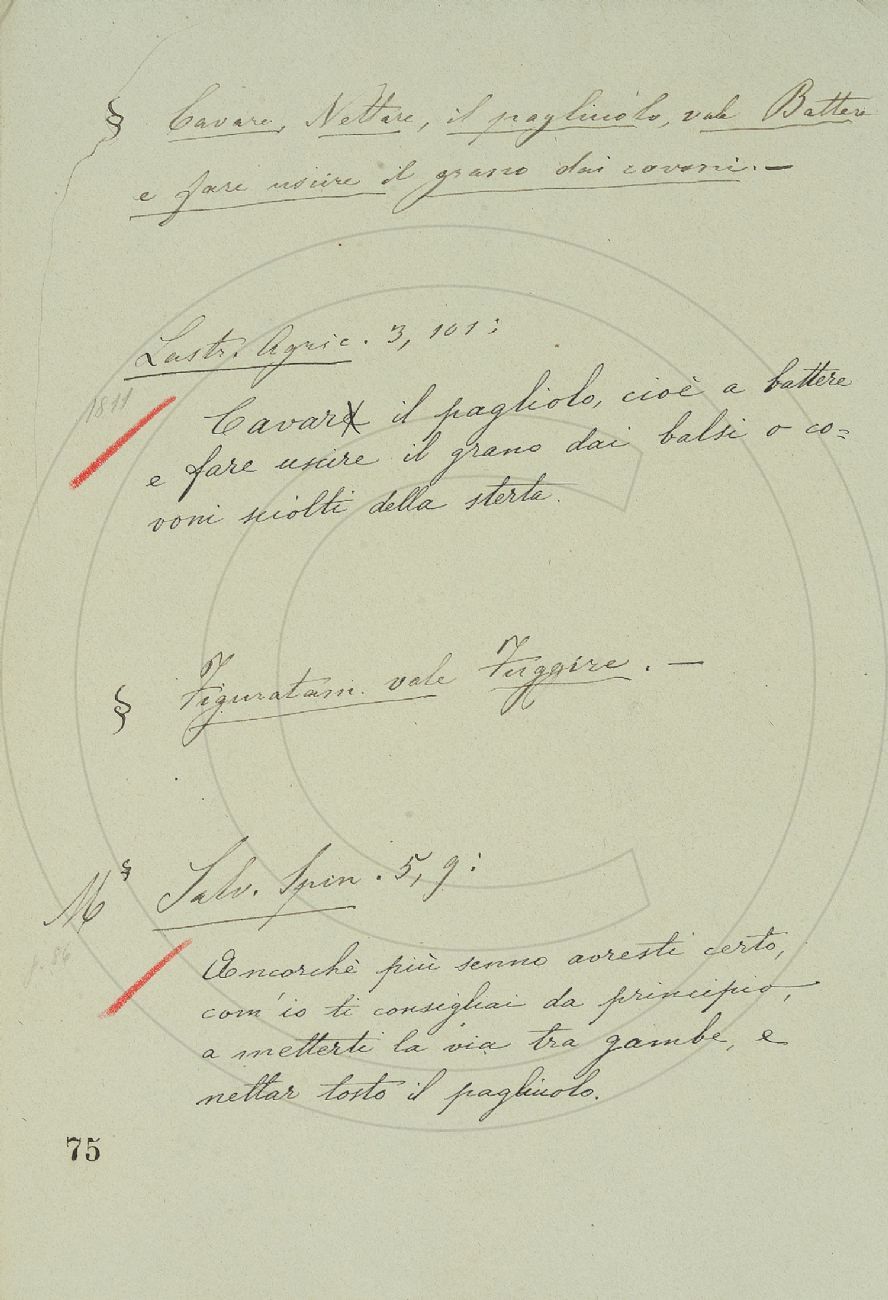 § Cavare, Nettare, il pagliuolo, vale Battere
e fare uscire il grano dai covoni. —
Lastr. Agric. 3, 101:
1811
Cavare il pagliolo, cioè a battere
e fare uscire il grano dai balsi o co=
voni sciolti della sterta.
§ Figuratam. vale Fuggire. —
Mˢ Salv. Spin. 5, 9:
p. 86
Ancorchè più senno avresti certo,
com' io ti consigliai da principio,
a metterti la via tra gambe, e
nettar tosto il pagliuolo.
75